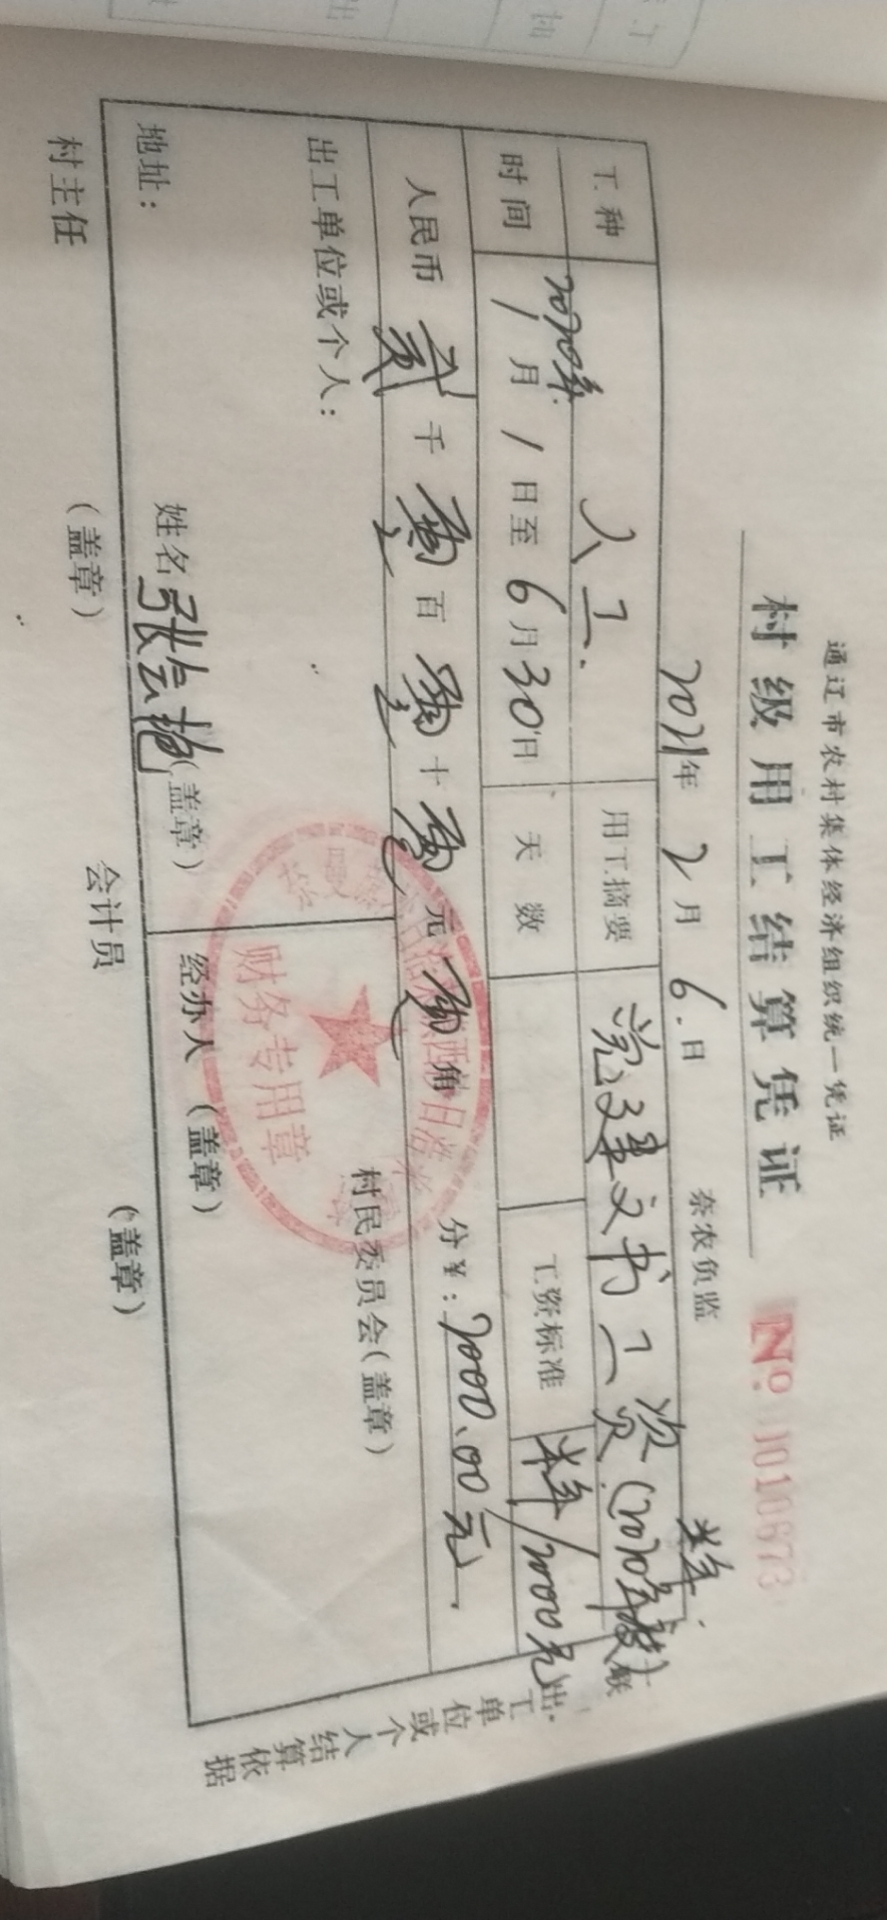 通辽市农村集体经济组织统一凭证
村级用工结算凭证
№ 1010673
2021年2月6日
奈农负监
工种 人工 用工摘要 党建文书工资(2020年
半年
联
时间 2020年 1月1日至6月30日 天数 工资标准 半年/2000元
人民币 贰千零百零十零元零角 分¥:2000.00元
出工单位或个人:
村民委员会(盖章)
地址: 姓名 (盖章)
经办人(盖章)
村主任 (盖章) 会计员 (盖章)
出工单位或个人结算依据
财务专用章